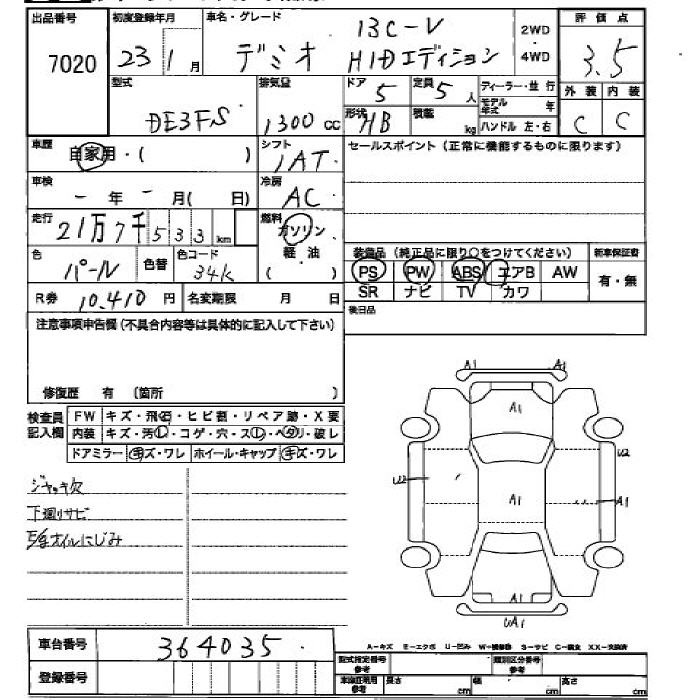 出品番号 初度登録年月 車名・グレード 13C-V 2WD 評価点
7020 23 1月 デミオ HIDエディション 4WD 3.5
型式 排気量 ドア 定員 ディーラー・並行 外装 内装
DE3FS 1300cc 5 5人 モデル年式 年
形状 HB 積載 kg ハンドル 左・右 C C
車歴 自家用・( ) シフト セールスポイント(正常に機能するものに限ります)
1AT
車検 - 年 - 月( 日) 冷房 AC
走行 21万7千533km 燃料 ガソリン
軽油
( )
色 パール 色替 色コード 34K
装備品(純正品に限り○をつけてください) 新車保証書
PS PW ABS エアB AW 有・無
SR ナビ TV カワ
R券 10,410円 名変期限 月 日 後日品
注意事項申告欄(不具合内容等は具体的に記入して下さい)
修復歴 有 (箇所 )
検査員記入欄
FW キズ・飛石・ヒビ割・リペア跡・X要
内装 キズ・汚れ・コゲ・穴・スレ・ヘタリ・破レ
ドアミラー キズ・ワレ ホイール・キャップ キズ・ワレ
ジャッキ欠
下廻りサビ
オイルにじみ
A1 A1
A1
U2
U2
A1 A1
A1
UA1
A-キズ E-エクボ U-凹み W-補修跡 S-サビ C-腐食 XX-交換済
車台番号 364035
型式指定番号 参考 類別区分番号 参考
登録番号 車庫証明用 参考 長さ cm 幅 cm 高さ cm